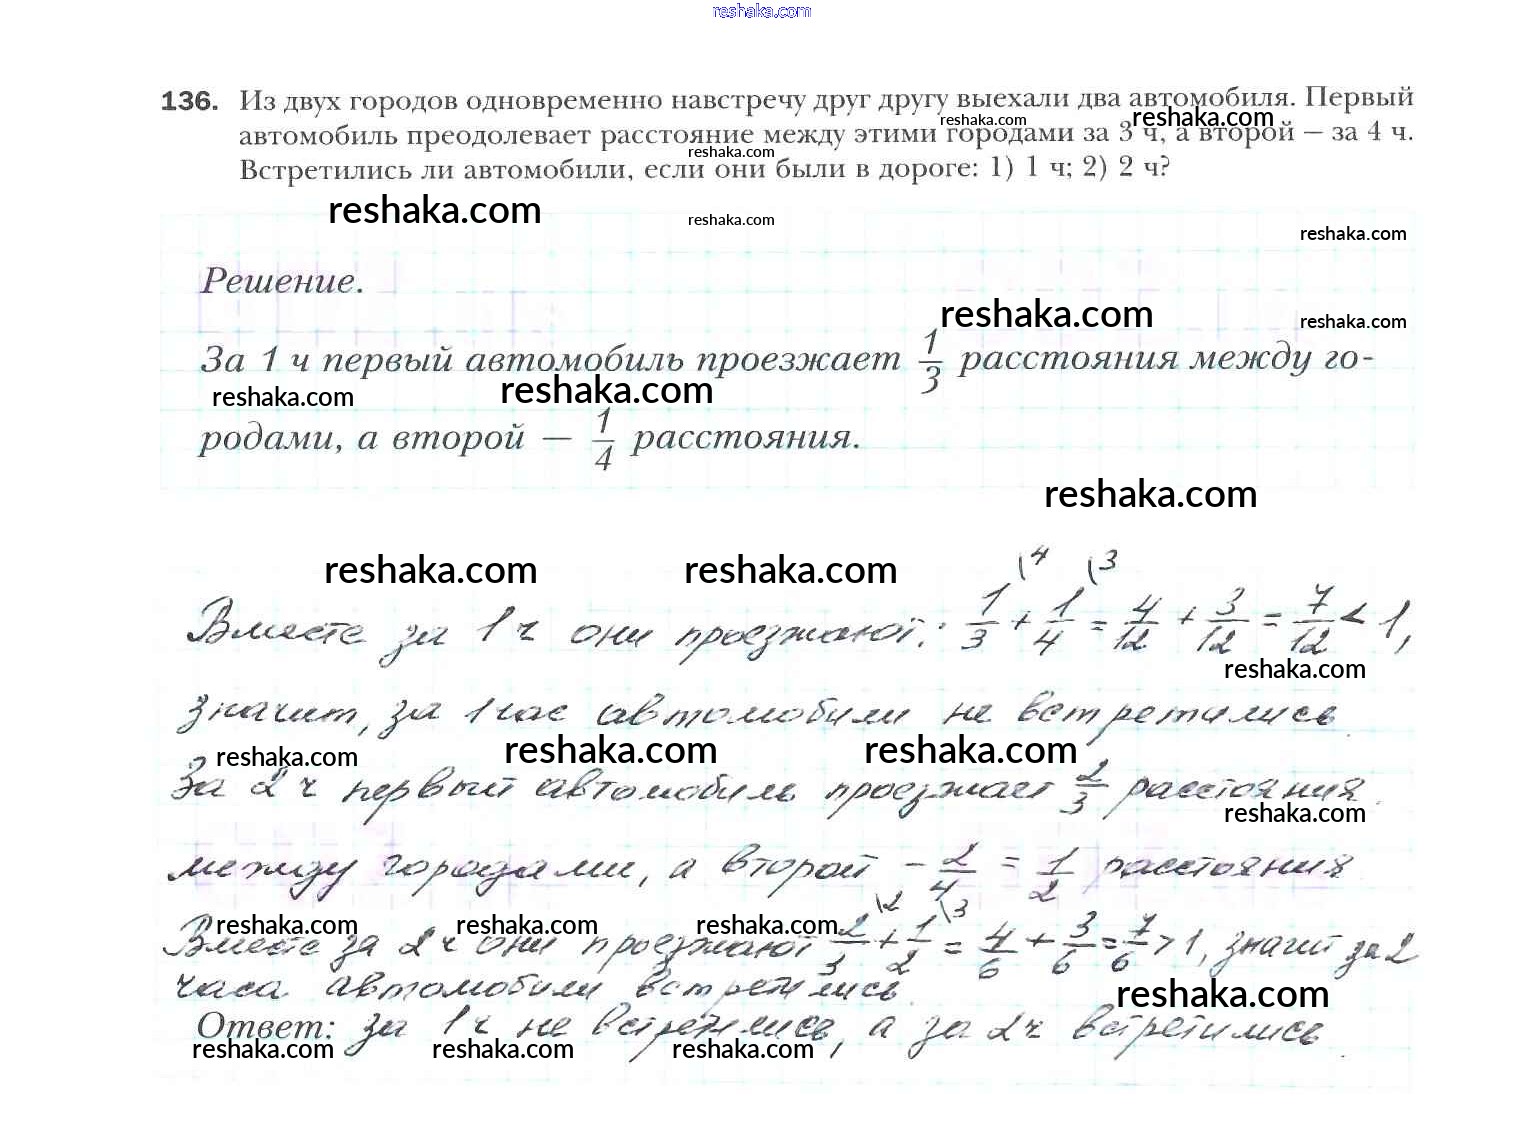 reshaka.com
136. Из двух городов одновременно навстречу друг другу выехали два автомобиля. Первый
reshaka.com reshaka.com
автомобиль преодолевает расстояние между этими городами за 3 ч, а второй – за 4 ч.
reshaka.com
Встретились ли автомобили, если они были в дороге: 1) 1 ч; 2) 2 ч?
reshaka.com reshaka.com reshaka.com
Решение.
reshaka.com reshaka.com
За 1 ч первый автомобиль проезжает 1/3 расстояния между го-
reshaka.com reshaka.com
родами, а второй — 1/4 расстояния.
reshaka.com
reshaka.com reshaka.com
Вместе за 1 ч они проезжают: 1/3 \4 + 1/4 \3 = 4/12 + 3/12 = 7/12 < 1,
reshaka.com
значит, за 1 час автомобили не встретились.
reshaka.com reshaka.com reshaka.com
За 2 ч первый автомобиль проезжает 2/3 расстояния
reshaka.com
между городами, а второй – 2/4 = 1/2 расстояния
reshaka.com reshaka.com reshaka.com
Вместе за 2 ч они проезжают 2/3 \2 + 1/2 \3 = 4/6 + 3/6 = 7/6 > 1, значит за 2
часа автомобили встретились.
reshaka.com
Ответ: за 1 ч не встретились, а за 2 ч встретились.
reshaka.com reshaka.com reshaka.com